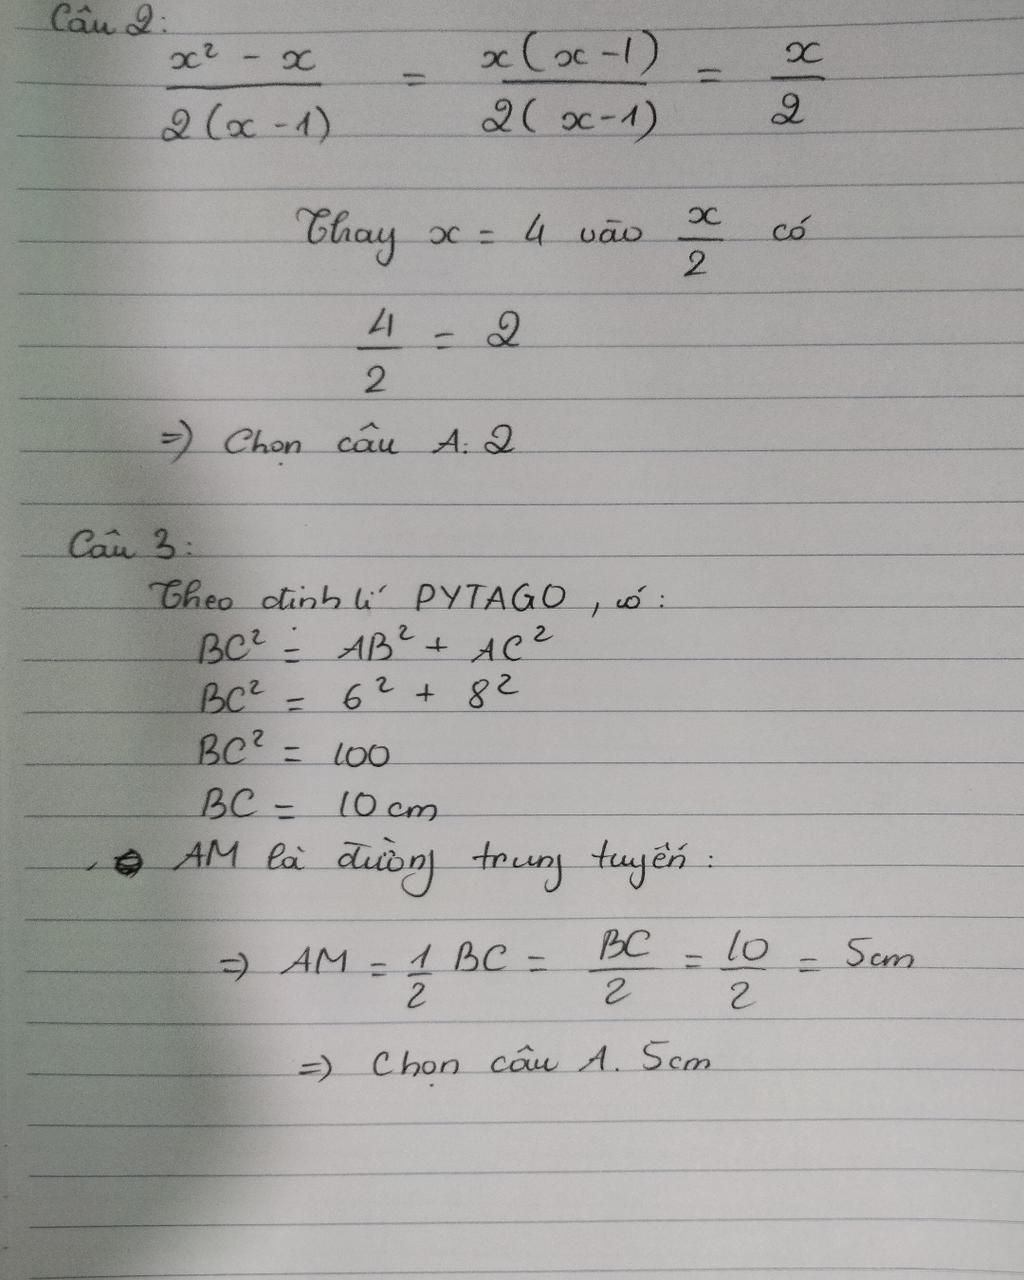 Câu 2:
x² - x / 2(x - 1) = x(x - 1) / 2(x - 1) = x / 2
Thay x = 4 vào x / 2 có
4 / 2 = 2
=> Chọn câu A. 2
Câu 3:
Theo định lí PYTAGO, có:
BC² = AB² + AC²
BC² = 6² + 8²
BC² = 100
BC = 10 cm
AM là đường trung tuyến:
=> AM = 1 / 2 BC = BC / 2 = 10 / 2 = 5cm
=> Chọn câu A. 5cm